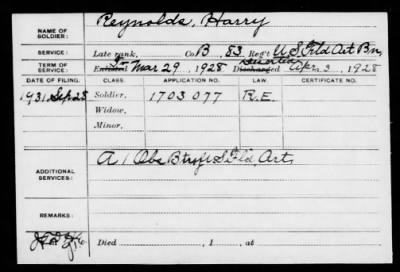 NAME OF SOLDIER: Reynolds, Harry
SERVICE: Late rank, Co. B, 83 Reg't U.S. Fld Art Bn,
TERM OF SERVICE: Enlisted Mar 29, 1928 Discharged Deserted Apr. 3, 1928
DATE OF FILING. CLASS. APPLICATION NO. LAW. CERTIFICATE NO.
1931 Sep 28 Soldier, 1703 077 R.E.
Widow,
Minor,
ADDITIONAL SERVICES: A 1 Obs Btry U S Fld, Art,
REMARKS:
Died , 1 , at